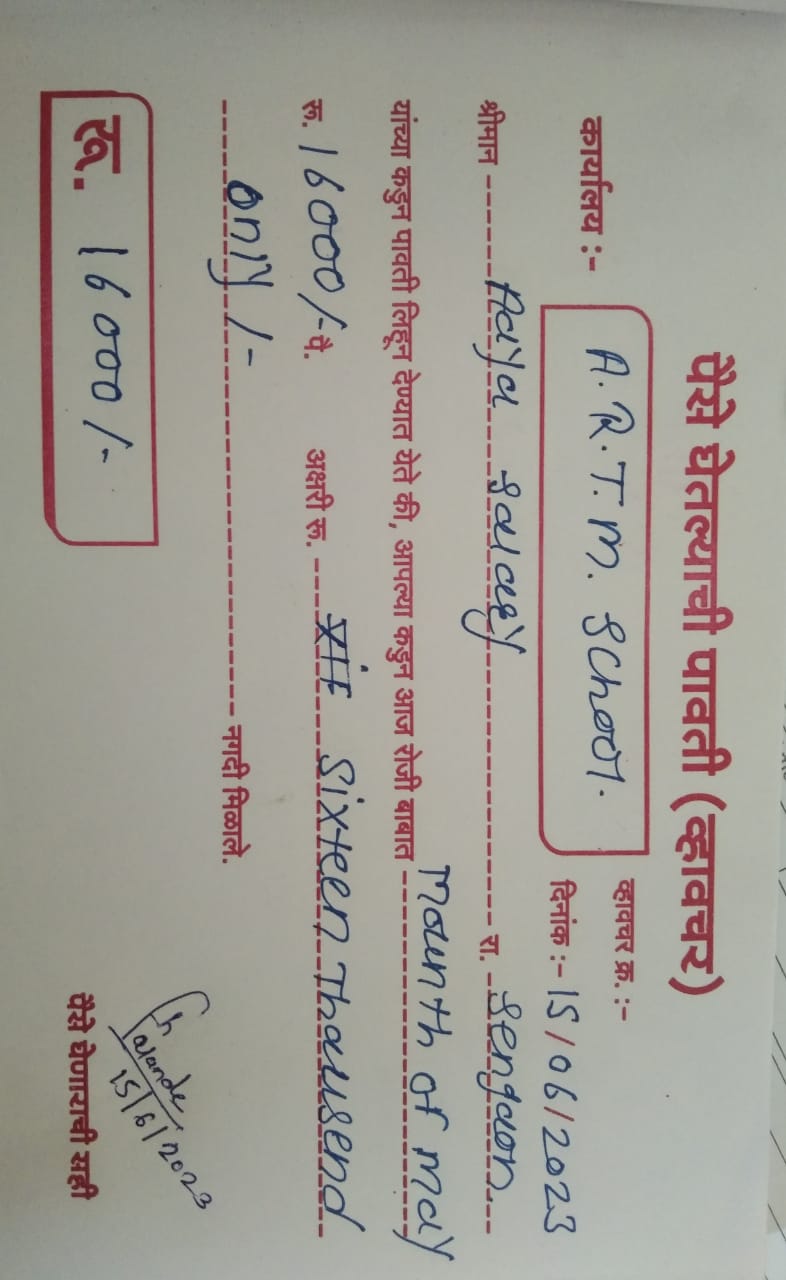 पैसे घेतल्याची पावती (व्हावचर)
व्हावचर क्र. :-
कार्यालय :- A. R. T. M. School.
दिनांक :- 15/06/2023
श्रीमान Aaya Salary रा. Sengaon.
यांच्या कडुन पावती लिहून देण्यात येते की, आपल्या कडुन आज रोजी बाबात Mounth of May
रू. 16000/- पै. अक्षरी रू. Sixteen Thousend
only /- नगदी मिळाले.
रू. 16000/-
15/6/2023
पैसे घेणाराची सही